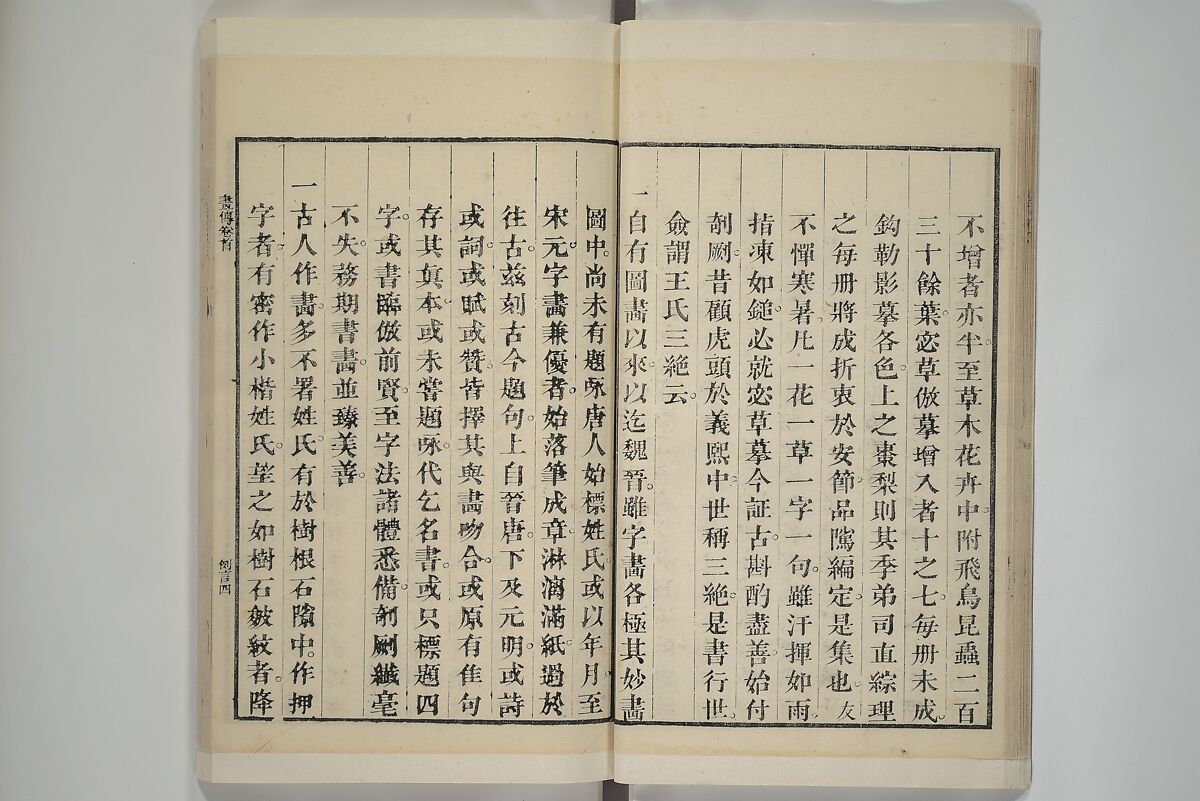 不增者亦半至草木花卉中附飛鳥昆蟲二百
三十餘葉宓草倣摹增入者十之七每册未成
鈎勒影摹各色上之棗梨則其季弟司直綜理
之每册將成折衷於安節品隲編定是集也友
不憚寒暑凡一花一草一字一句雖汗揮如雨
指凍如鎚必就宓草摹今証古斟酌盡善始付
剞劂昔顧虎頭於義熙中世稱三絶是書行世
僉謂王氏三絶云
一自有圖畫以來以迄魏晉雖字畫各極其妙畫
圖中尚未有題咏唐人始標姓氏或以年月至
宋元字畫兼優者始落筆成章淋漓滿紙過於
往古茲刻古今題句上自晉唐下及元明或詩
或詞或賦或贊皆擇其與畫吻合或原有佳句
存其眞本或未嘗題咏代乞名書或只標題四
字或書臨倣前賢至字法諸體悉備剞劂纖毫
不失務期書畫並臻美善
一古人作畫多不署姓氏有於樹根石隙中作押
字者有密作小楷姓氏望之如樹石皴紋者降
畫傳卷首
例言四